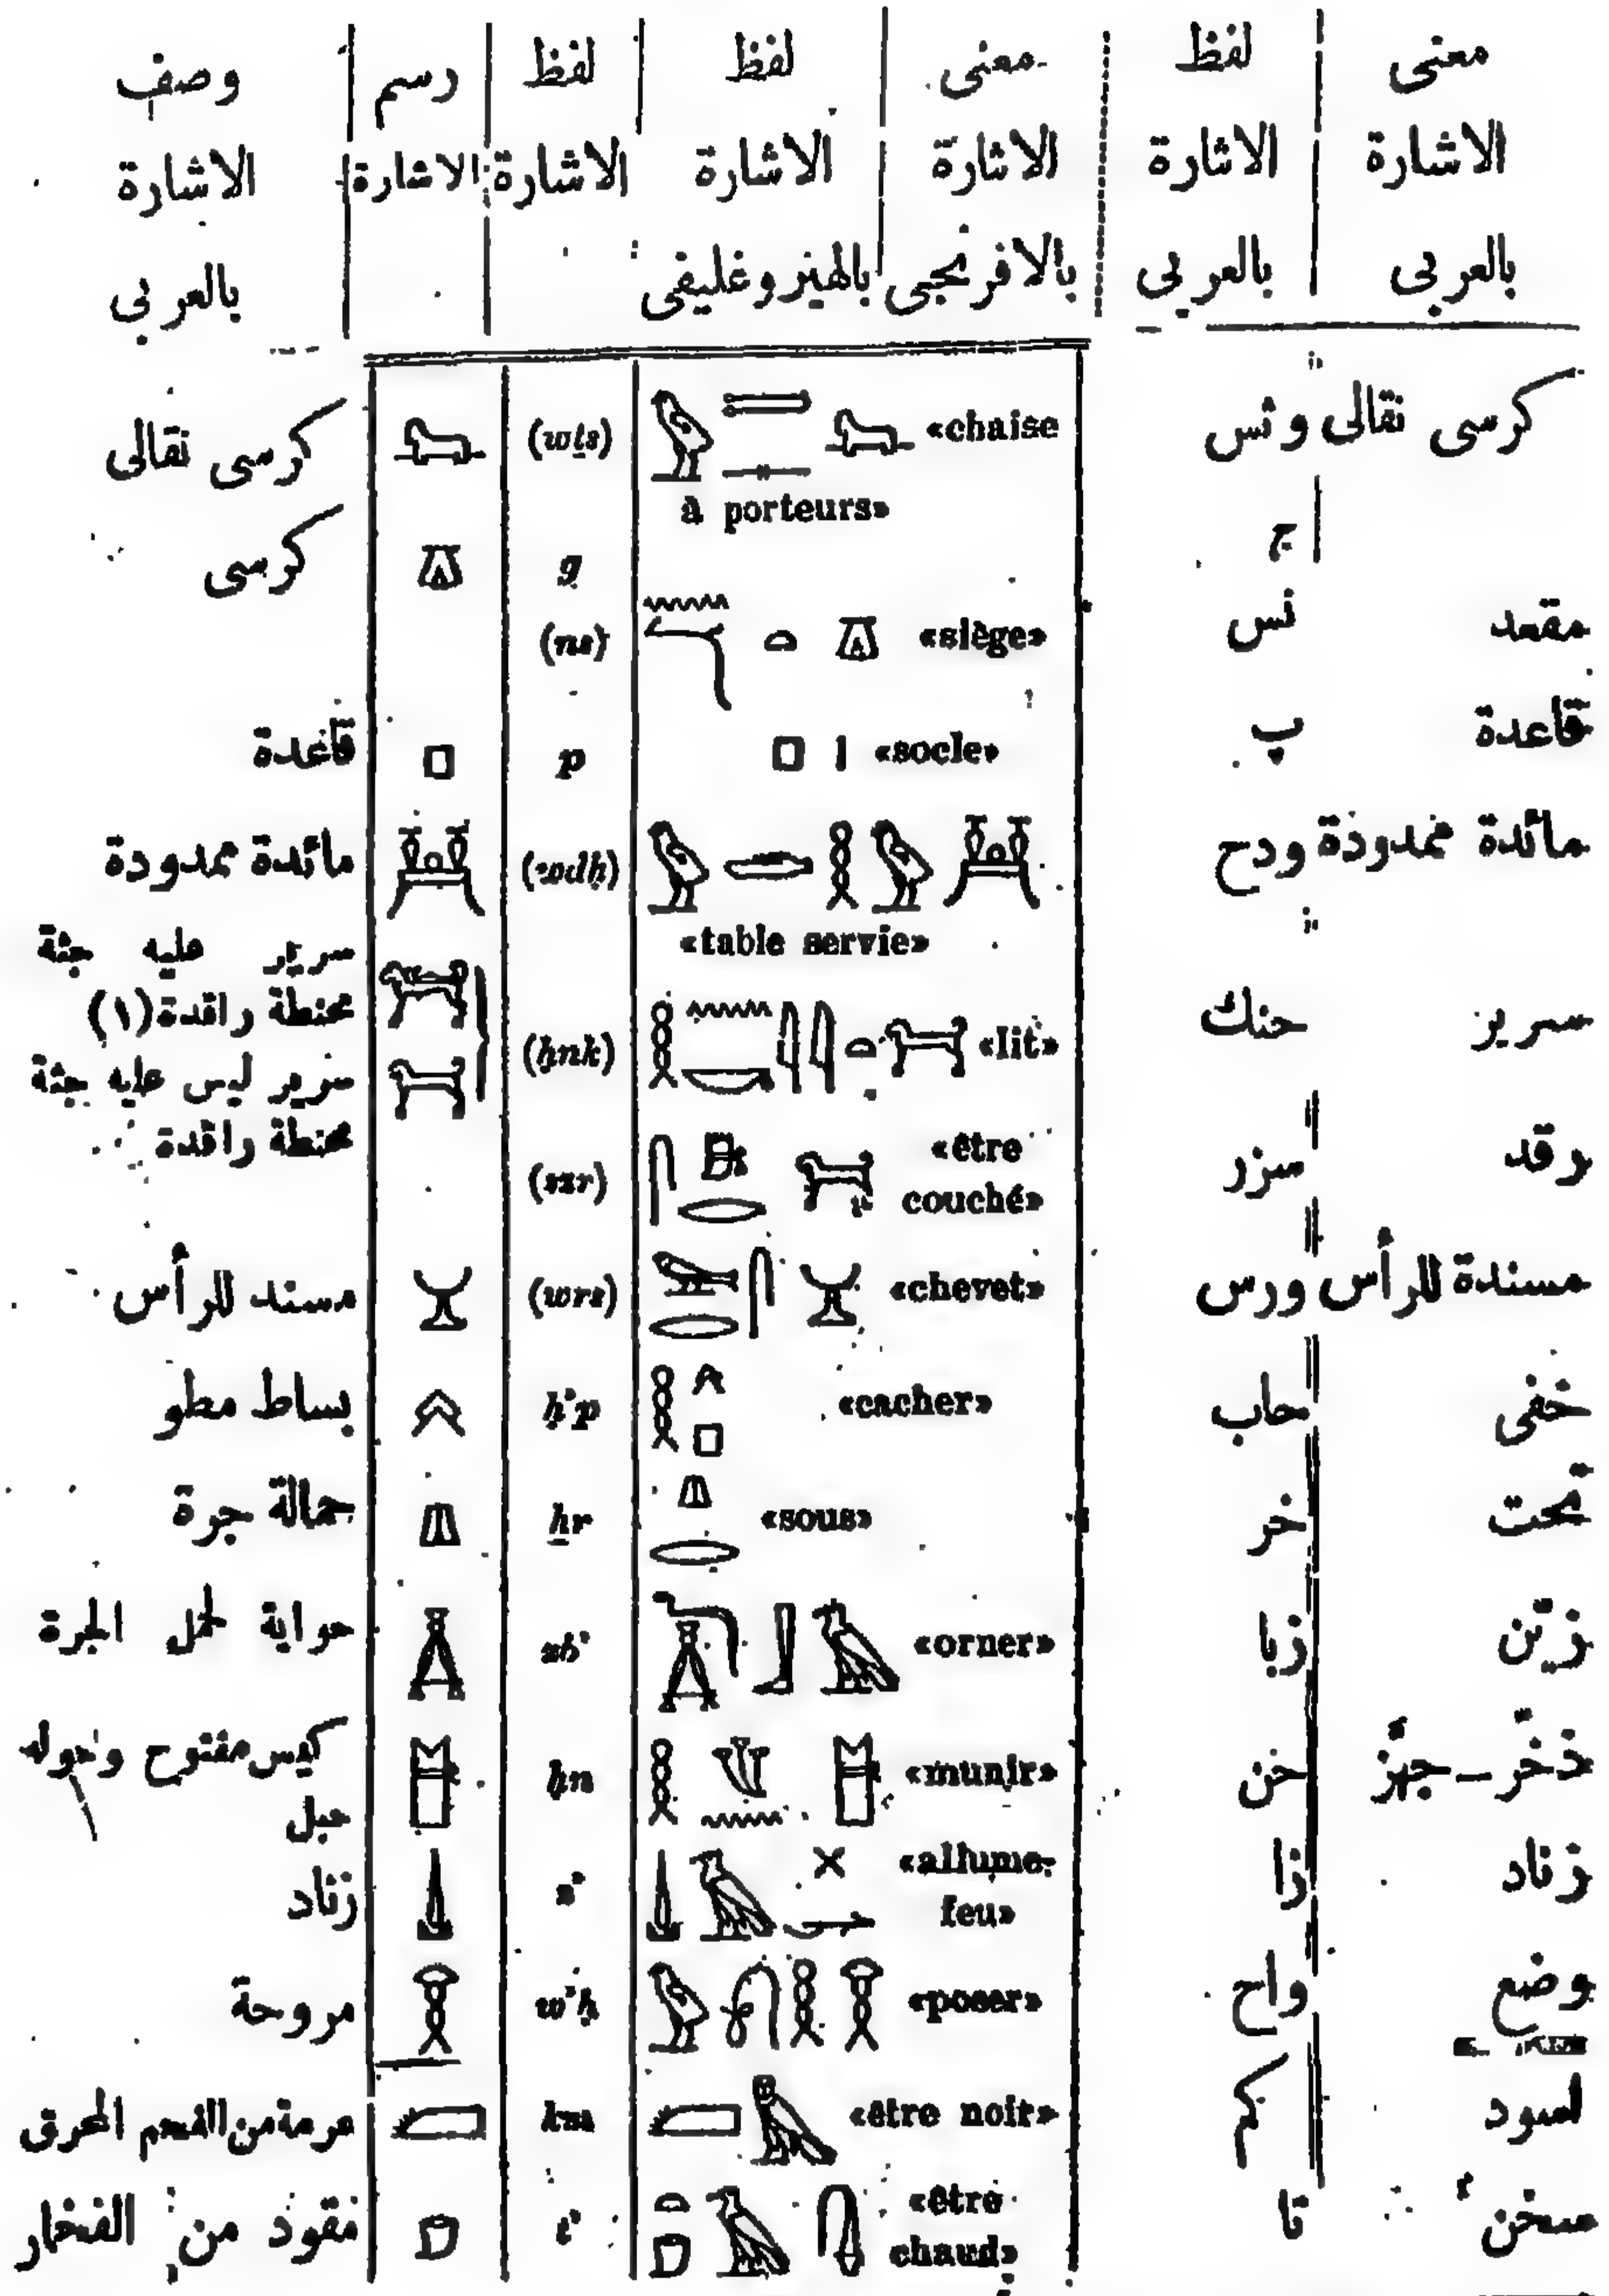 معنى | لفظ | معنى | لفظ | لفظ | رسم | وصف
الاشارة | الاشارة | الاشارة | الاشارة | الاشارة | الاشارة | الاشارة
بالعربى | بالعربى | بالافرنجى | بالهيروغليفى | بالعربى
كرسى نقالى | وثس | «chaise à porteurs» | (wṯs) | كرسى نقالى
ج | g | كرسى
مقعد | نس | «siège» | (ns)
قاعدة | پ | «socle» | p | قاعدة
مائدة ممدودة | ودح | «table servie» | (wdḥ) | مائدة ممدودة
سرير | حنك | «lit» | (ḥnk) | سرير عليه جثة محنطة راقدة (١)
سرير ليس عليه جثة محنطة راقدة
رقد | سزر | «être couché» | (szr)
مسندة للرأس | ورس | «chevet» | (wrs) | مسند للرأس
خفى | حاب | «cacher» | ḥ'p | بساط مطو
تحت | خر | «sous» | ẖr | حمالة جرة
زيّن | زبا | «orner» | zb' | حواية لحمل الجرة
ذخّر – جهّز | حن | «munir» | ḥn | كيس مفتوح وحوله حبل
زناد | زا | «allume-feu» | زناد
وضع | واح | «poser» | w'ḥ | مروحة
اسود | كم | «être noir» | km | عرمة من الفحم المحرق
سخن | تا | «être chaud» | t' | من الفخار